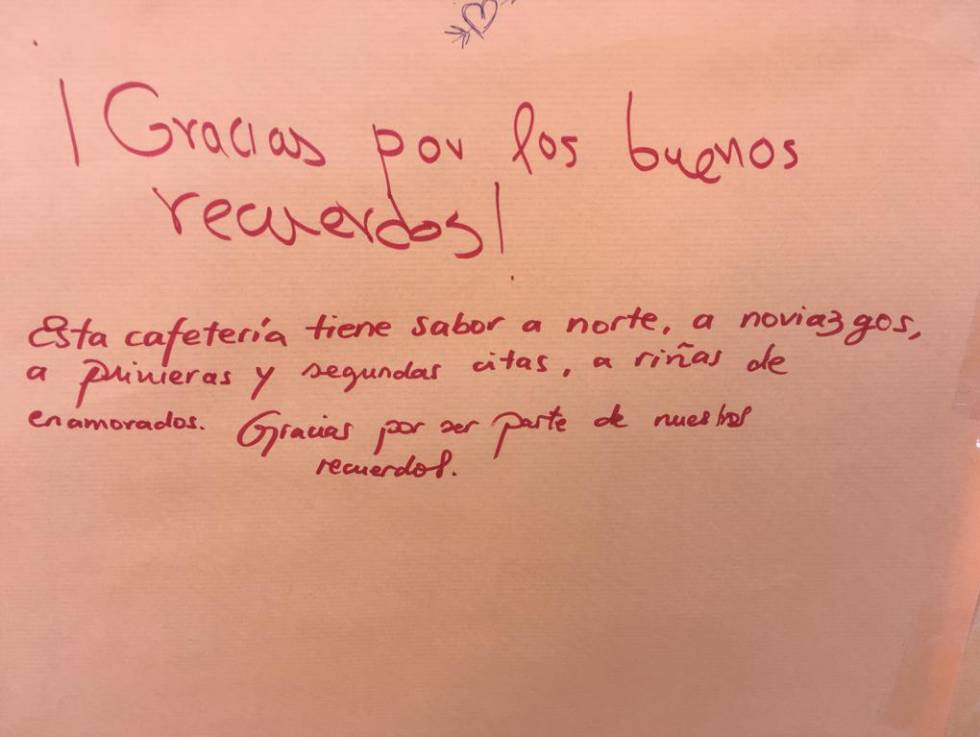 ¡Gracias por los buenos
recuerdos!
Esta cafetería tiene sabor a norte, a noviazgos,
a primeras y segundas citas, a riñas de
enamorados. Gracias por ser parte de nuestros
recuerdos.